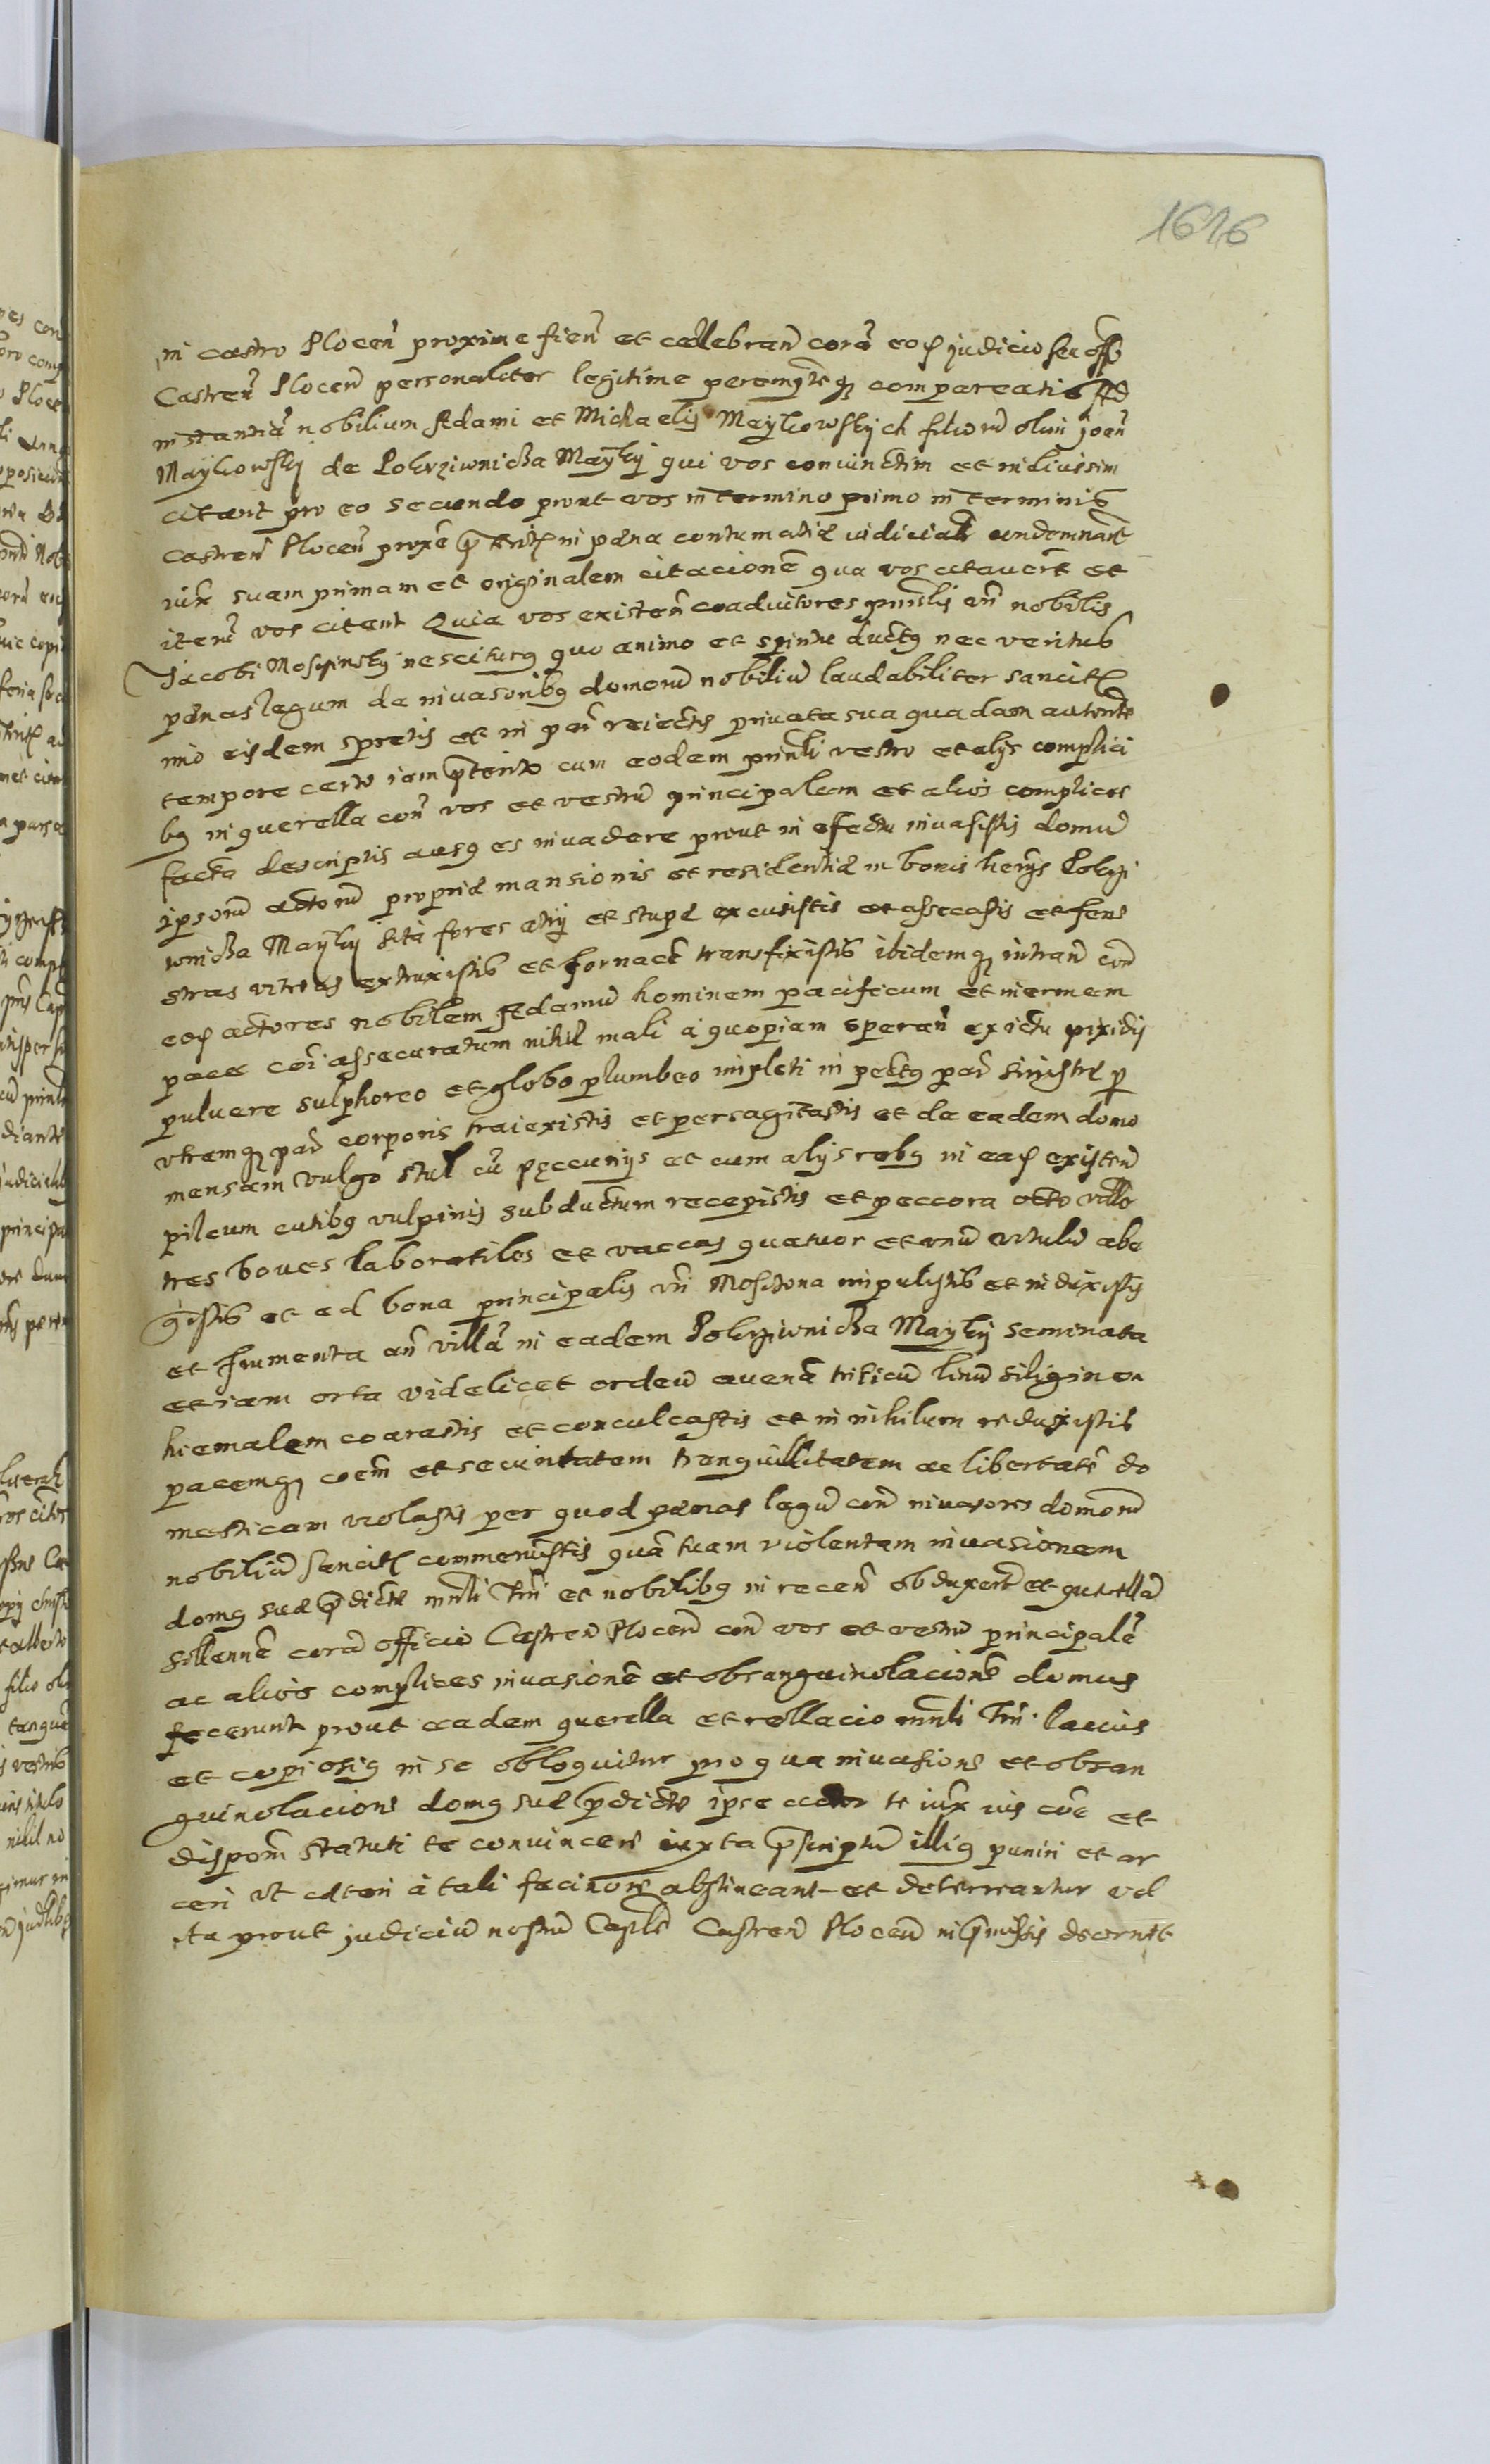 1616
in castro Plocen̄ proxime fien̄ et celebran̄ corā eod judicio seu offo
Castren̄ Plocen̄ personaliter legitime peremptteq compareatis Ad
instantiā nobilium Adami et Michaelis Maykowskych filiorū olim Joan̄
Maykowsky de Pokrziwnicza Mayky qui vos coniunctim et indiuisim
citant pro eo secundo prout vos in termino primo in terminis
castren̄ Plocen̄ proxē prterit in pæna contumatiæ iudiciali condemnarūt
iux suam primam et originalem citacionē qua vos citauerūt et
iterū vos citant Quia vos existen̄ coadiutores prinlis vn̄ nobilis
Jacobi Moszinsky nesciturq quo animo et spiritu ductq nec veritus
pænas legum de inuasoribq domorū nobiliū laudabiliter sancit
imo eisdem spretis et in par̄ reiectis priuata sua quadam autorite
tempore certo iam prterito cum eodem prinli vestro et alijs complici
bq in querella con̄ vos et vestrū principalem et alios complices
facta descriptis ausq es inuadere prout in efectu inuasistis domū
ipsorū actorū propriæ mansionis et residentiæ in bonis heris Pokrzi
wnicza Mayky sita fores atrij et stupæ excusistis et assecastis et fene
stras vitreas extruxistis et fornacē transfixistis ibidemq intran̄ con̄
eosd actores nobilem Adamū hominem pacificum et inermem
pace coi assecuratum nihil mali à quopiam speran̄ ex ictu pixidis
puluere sulphoreo et globo plumbeo impleti in pectq par̄ sinistræ p
vtramq par̄ corporis traiexistis et persagitastis et de eadem domo
mensam vulgo stul cū peccunijs et cum alijs rebq in ead existen̄
pileum cutibq vulpinis subductum recepistis et peccora octo
tres boues laboratiles et vaccas quatuor et vnū vitulū abe
gistis et ad bona principalis vri impulistis et induxistis
et frumenta an̄ villā in eadem Pokrziwnicza Mayky seminata
et iam orta videlicet ordeū auenā triticū linū siliginem
hiemalem coarastis et conculcastis et in nihilum reduxistis
pacemq coem̄ et securitatem tranquillitatem ac libertatē do
mesticam violastis per quod pænas legū con̄ inuasores domorū
nobiliū sancit commeruistis quā tuam violentam inuasionem
domq suæ prdictæ minli trri et nobilibq in recen̄ obduxerūt et querellā
sollennē corā officio Castren̄ Plocen̄ con̄ vos et vestrū principalē
ac alios complices inuasionē et obsanguinolacionē domus
fecerunt prout eadem querella et rellacio minli trri lacius
et copiosiq in se obloquitur pro qua inuasione et obsan
guinolacione domq suæ prdictæ ipse actor te iux ius coē et
disponem statuti te conuincere iuxta prscriptū illiq puniri et ar
ceri vt ceteri à tali facinore abstineant et deterreantur vel
ita prout judiciū nostrū Caplē Castren̄ Plocen̄ in prmissis decernet